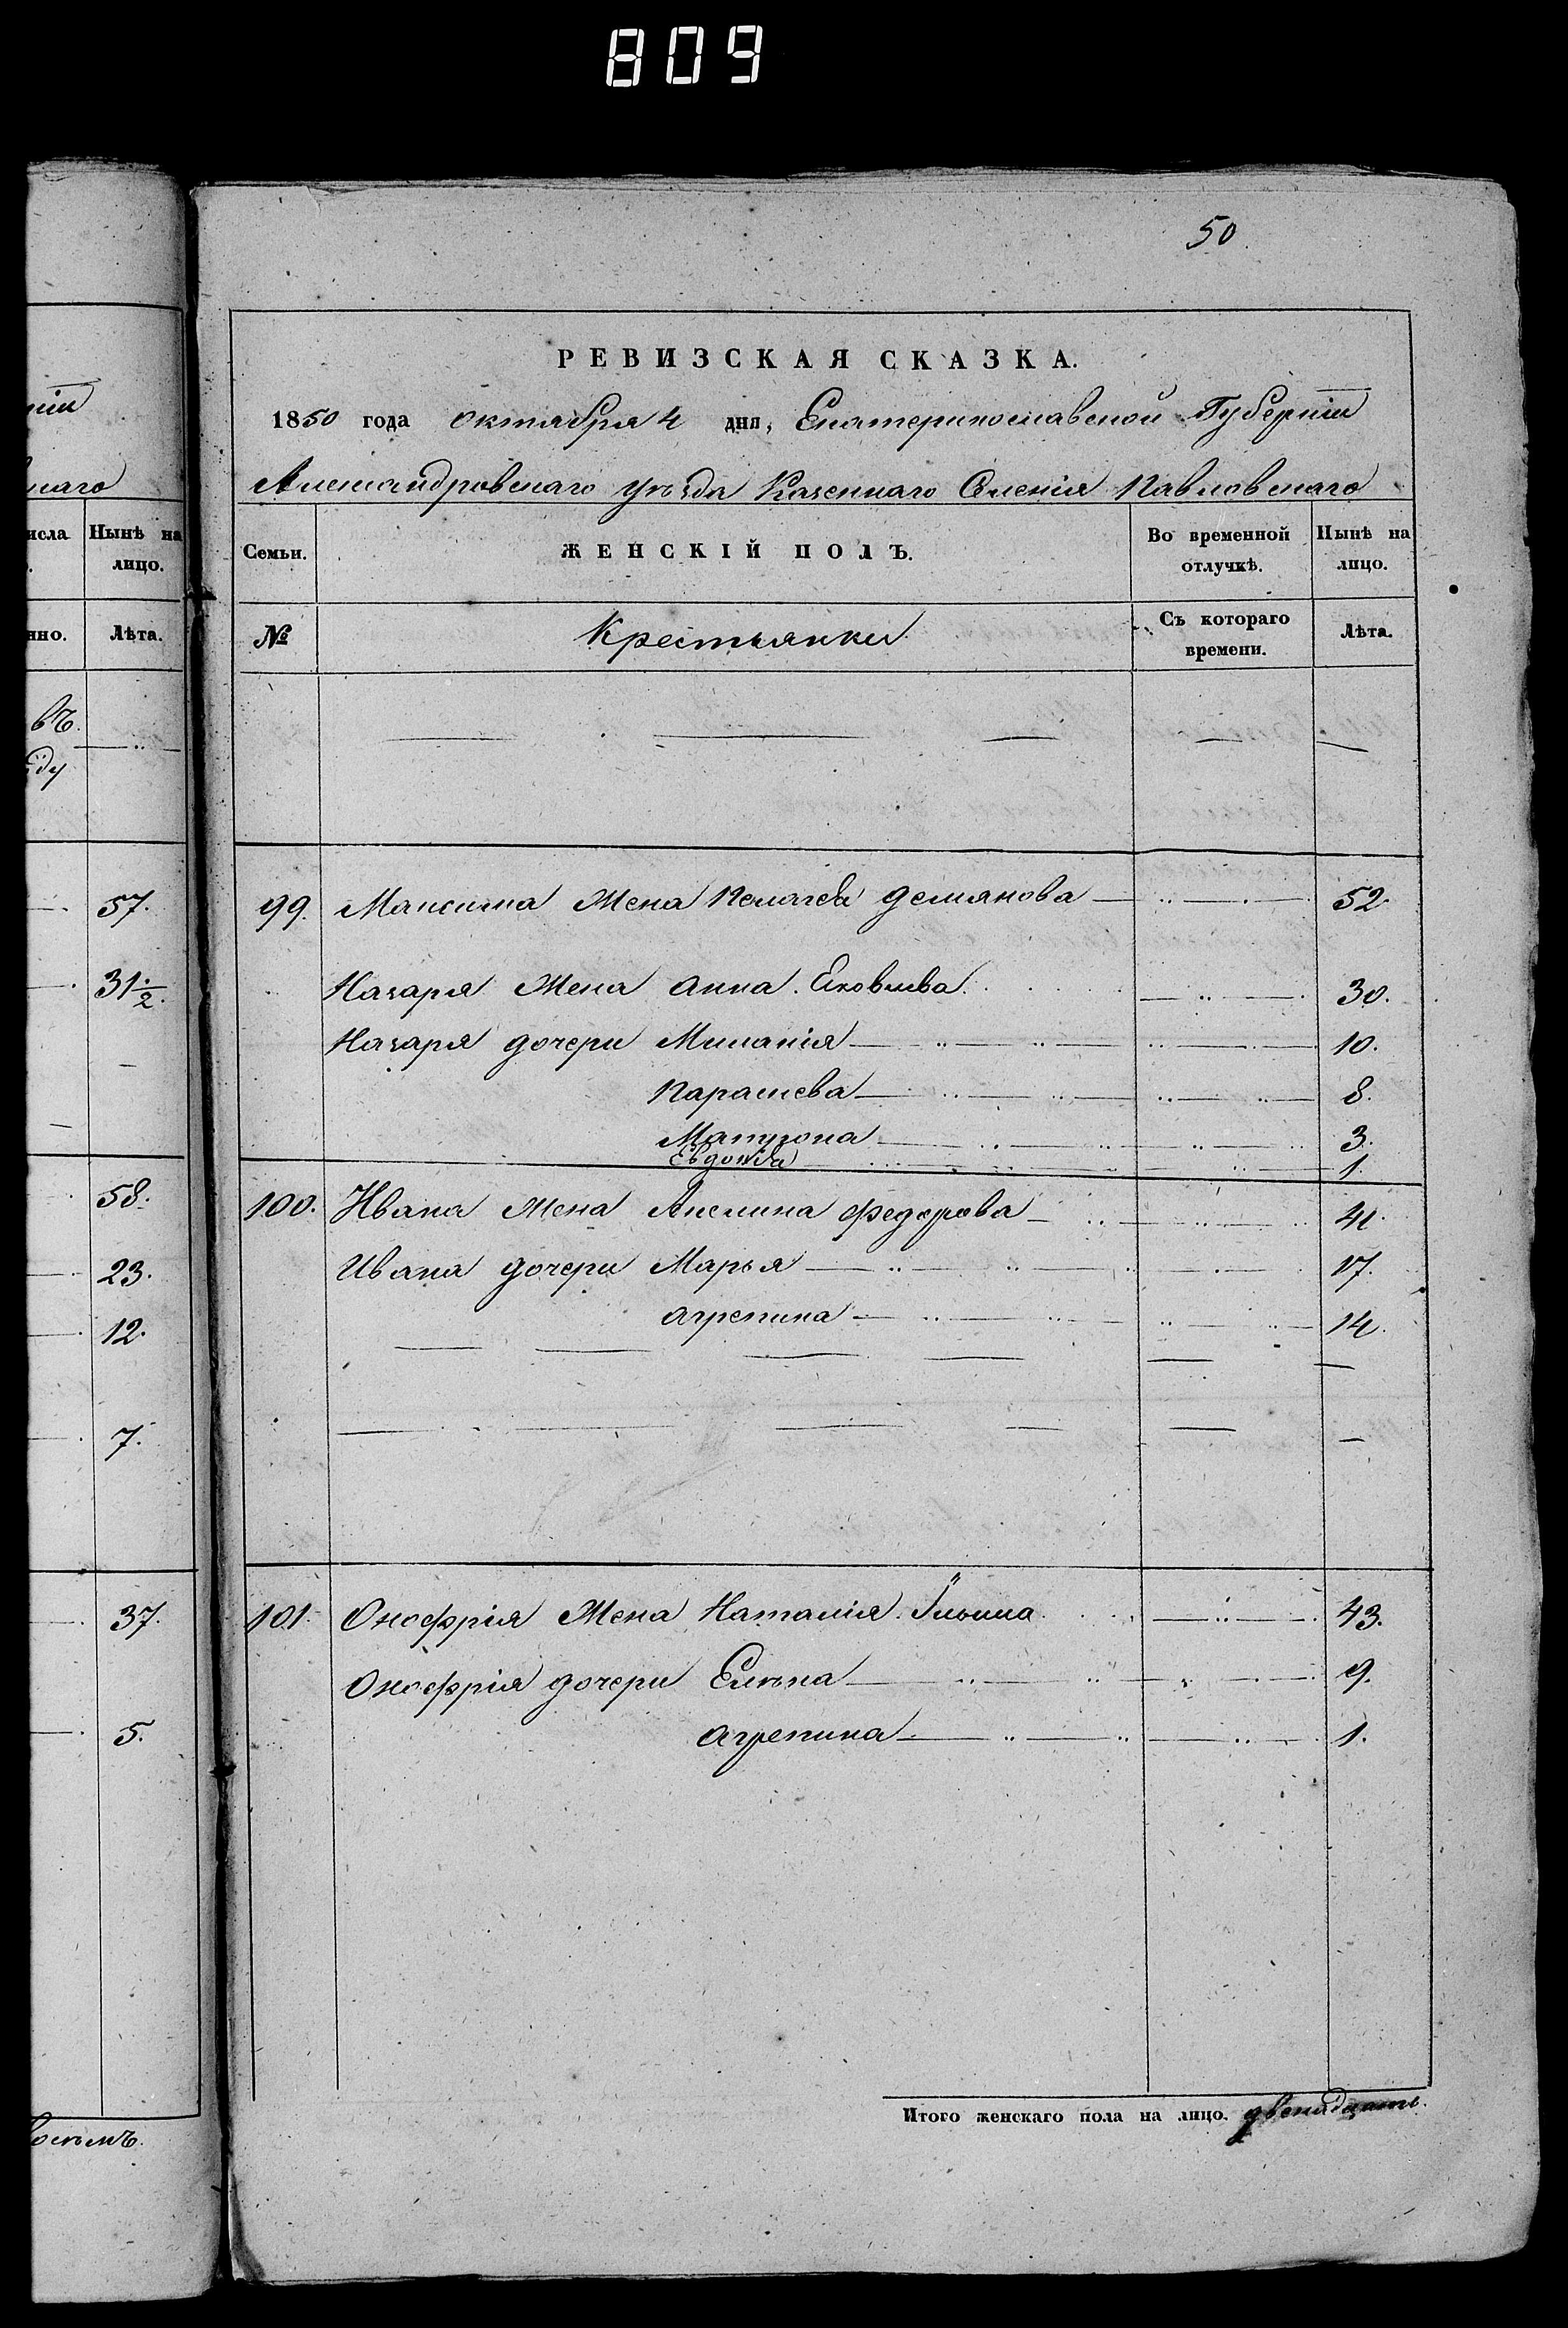 809
50
РЕВИЗСКАЯ СКАЗКА.
1850 года октября 4 дня, Екатеринославской Губерніи
Александровскаго уѣзда Казеннаго Селенія Павловскаго
Семьи. ЖЕНСКІЙ ПОЛЪ. Во временной отлучкѣ. Нынѣ на лицо.
№ Крестьянки Съ котораго времени. Лѣта.
99. Максима Жена Пелагея Демянова 52.
Назаря Жена Анна Яковлева 30.
Назаря дочери Миланія 10.
Параснева 8.
Матрона 3.
Евдокія 1.
100. Ивана Жена Акелина Федорова 41.
Ивана дочери Марья 17.
Агрепина 14.
101. Онофрія Жена Наталія Ильина 43.
Онофрія дочери Елѣна 9.
Агрепина 1.
Итого женскаго пола на лицо. двенадцать.
Нынѣ на лицо.
Лѣта.
57.
31 1/2.
58.
23.
12.
7.
37.
5.